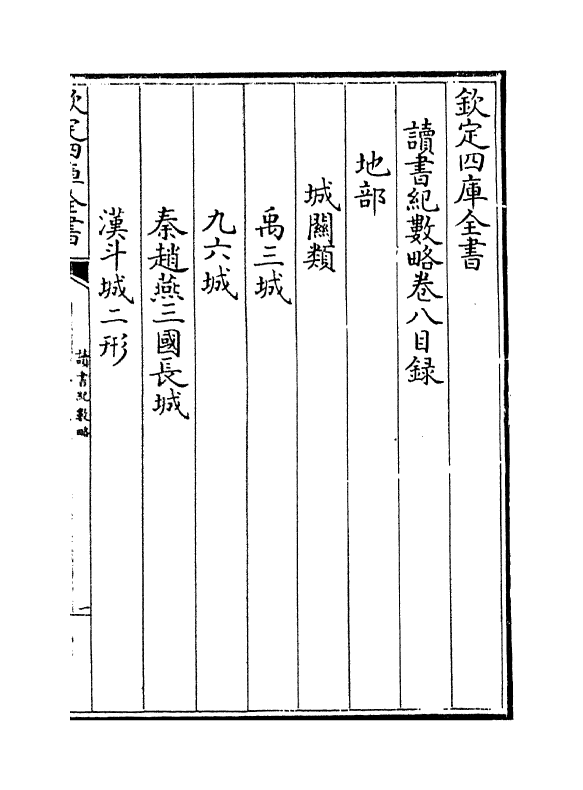 欽定四庫全書
讀書紀數略卷八目録
地部
城關類
禹三城
九六城
秦趙燕三國長城
漢斗城二形
欽定四庫全書
讀書紀數略
一